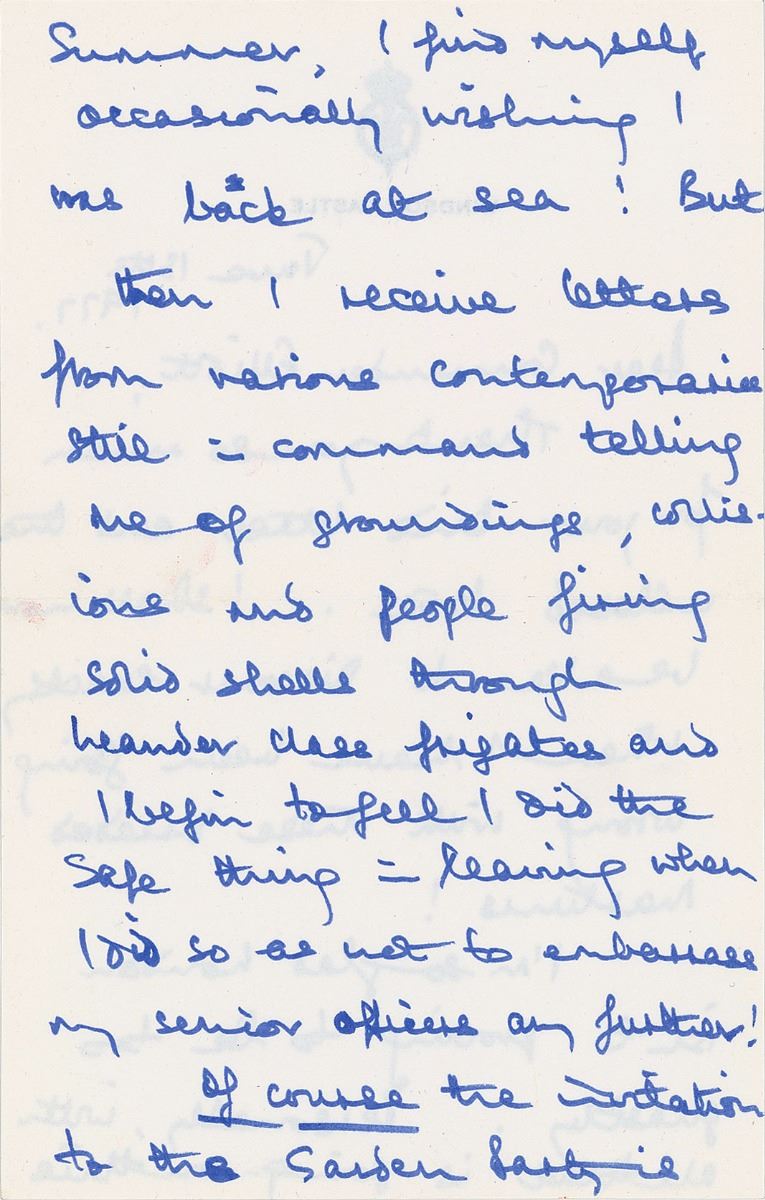 Summer, I find myself
occasionally wishing I
was back at sea! But
then I receive letters
from various contemporaries
still in command telling
me of groundings, collis-
ions and people firing
solid shells through
Leander class frigates and
I begin to feel I did the
safe thing in leaving when
I did so as not to embarrass
my senior officers any further!
Of course the invitation
to the Garden Party is